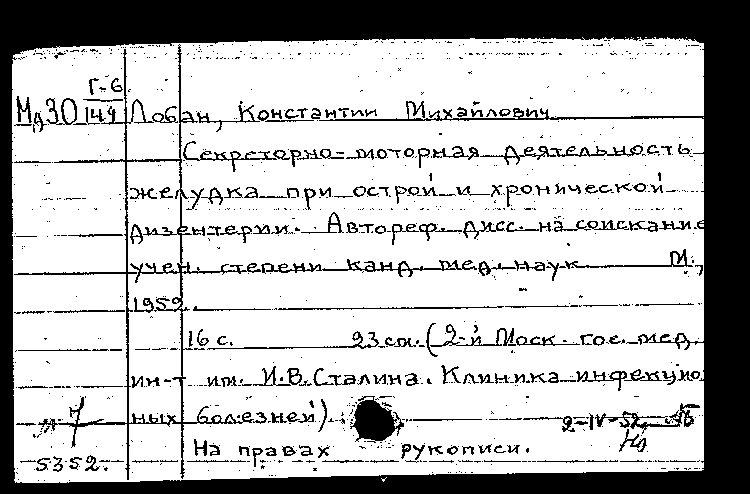 Г-6
Мд30 149 Лобан, Константин Михайлович
Секреторно-моторная деятельность
желудка при острой и хронической
дизентерии. Автореф. дисс. на соискание
учен. степени канд. мед. наук. М.,
1952.
16 с. 23 см. (2-й Моск. гос. мед.
ин-т им. И.В.Сталина. Клиника инфекцион
ных болезней)
2-IV-52
На правах рукописи.
5352.